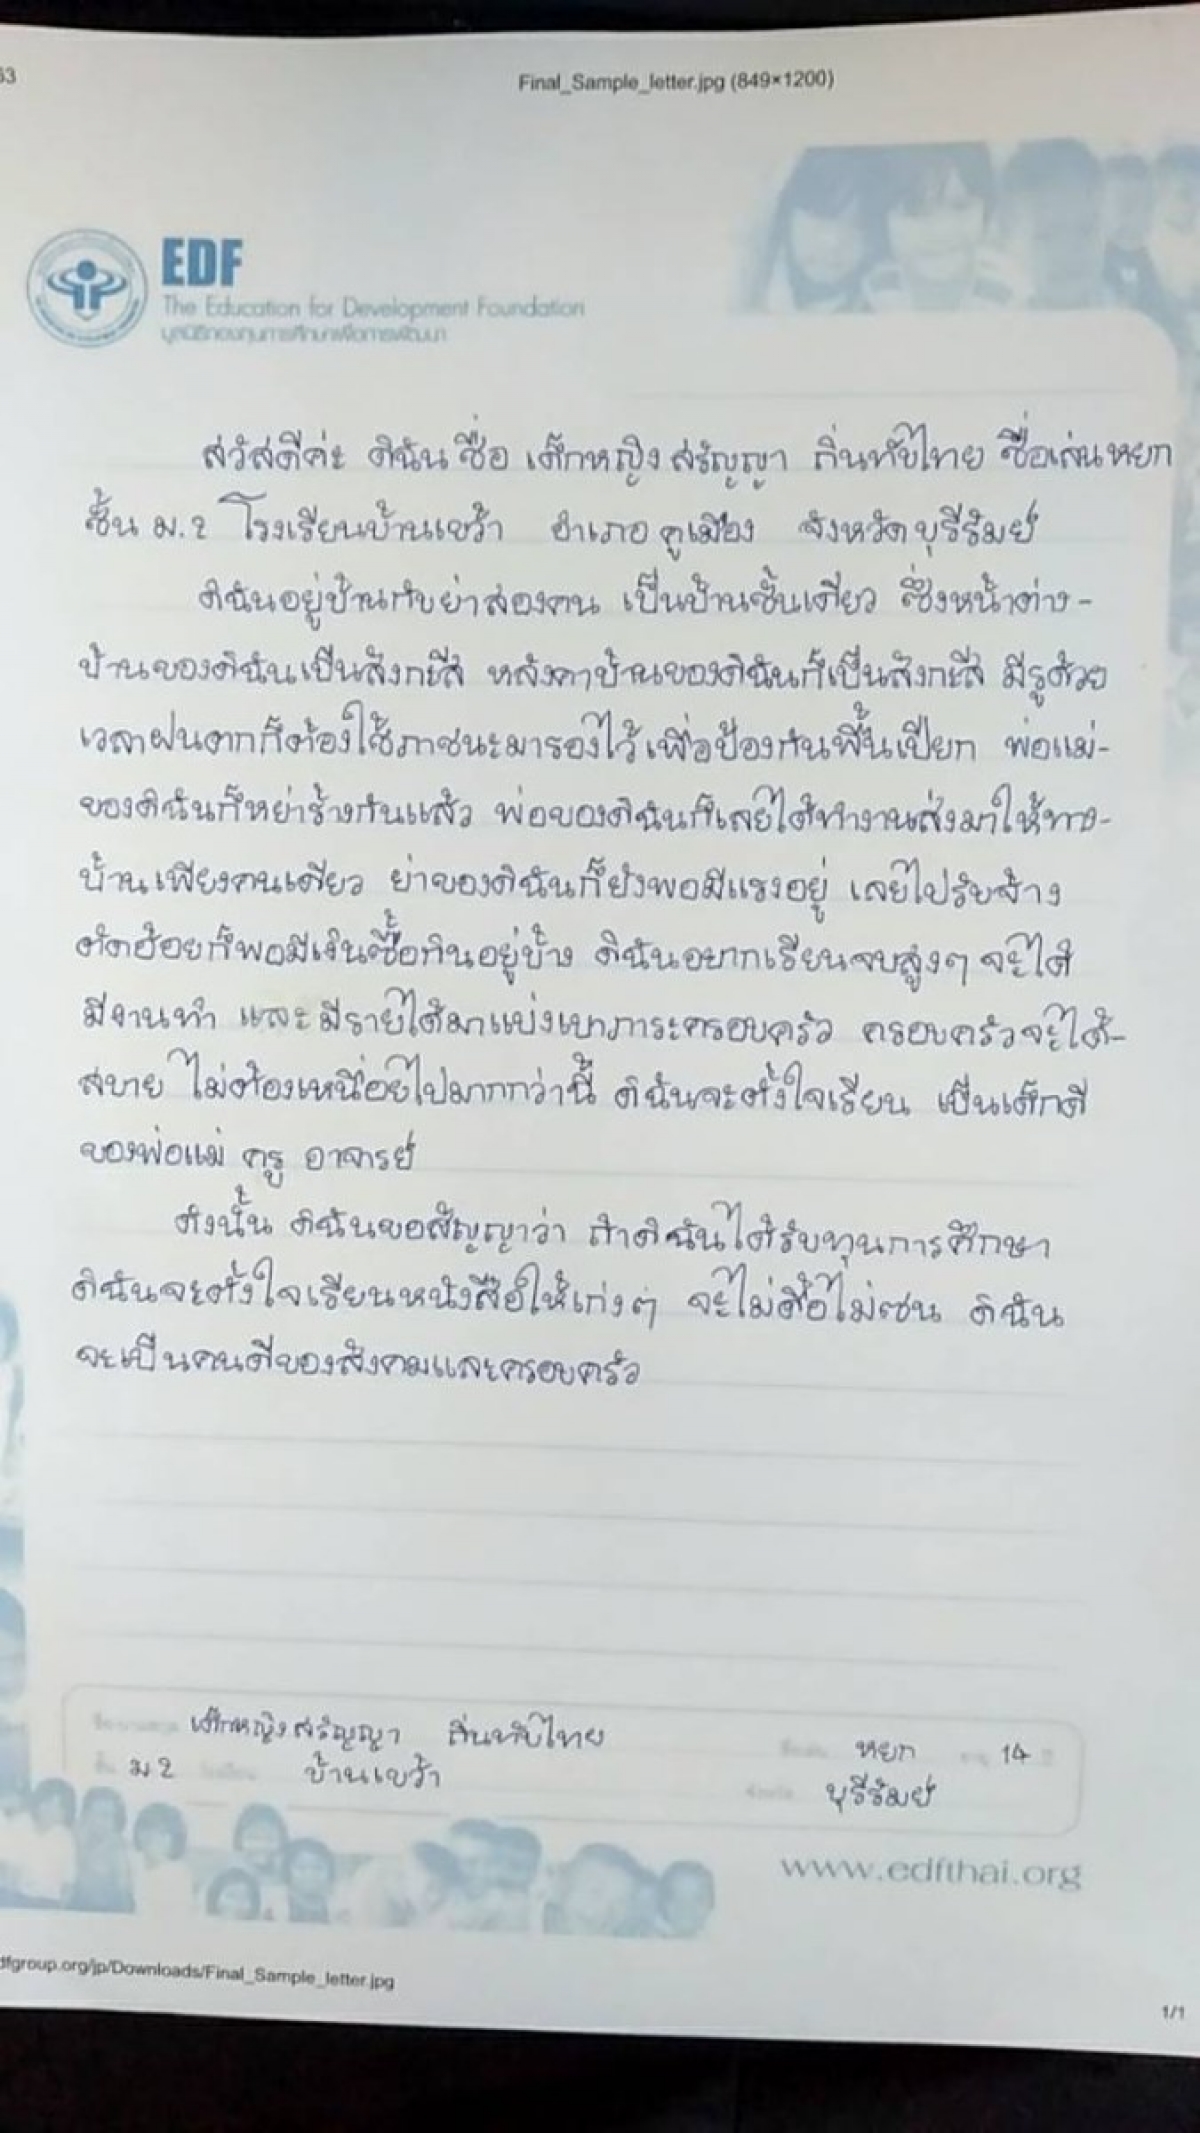 63
Final_Sample_letter.jpg (849×1200)
EDF
The Education for Development Foundation
มูลนิธิกองทุนการศึกษาเพื่อการพัฒนา
สวัสดีค่ะ ดิฉันชื่อ เด็กหญิงสรัญญา ถิ่นทัพไทย ชื่อเล่นหยก
ชั้น ม.2 โรงเรียนบ้านเขว้า อำเภอ คูเมือง จังหวัดบุรีรัมย์
ดิฉันอยู่บ้านกับย่าสองคน เป็นบ้านชั้นเดียว ซึ่งหน้าต่าง-
บ้านของดิฉันเป็นสังกะสี หลังคาบ้านของดิฉันก็เป็นสังกะสี มีรูด้วย
เวลาฝนตกก็ต้องใช้ภาชนะมารองไว้เพื่อป้องกันพื้นเปียก พ่อแม่-
ของดิฉันก็หย่าร้างกันแล้ว พ่อของดิฉันก็เลยได้ทำงานส่งมาให้ทาง-
บ้านเพียงคนเดียว ย่าของดิฉันก็ยังพอมีแรงอยู่ เลยไปรับจ้าง
ตัดอ้อยก็พอมีเงินซื้อกินอยู่บ้าง ดิฉันอยากเรียนจบสูงๆ จะได้
มีงานทำ และมีรายได้มาแบ่งเบาภาระครอบครัว ครอบครัวจะได้-
สบาย ไม่ต้องเหนื่อยไปมากกว่านี้ ดิฉันจะตั้งใจเรียน เป็นเด็กดี
ของพ่อแม่ ครู อาจารย์
ดังนั้น ดิฉันขอสัญญาว่า ถ้าดิฉันได้รับทุนการศึกษา
ดิฉันจะตั้งใจเรียนหนังสือให้เก่งๆ จะไม่ดื้อไม่ซน ดิฉัน
จะเป็นคนดีของสังคมและครอบครัว
เด็กหญิงสรัญญา ถิ่นทัพไทย หยก 14
ชั้น ม 2 บ้านเขว้า บุรีรัมย์
www.edfthai.org
dfgroup.org/jp/Downloads/Final_Sample_letter.jpg
1/1